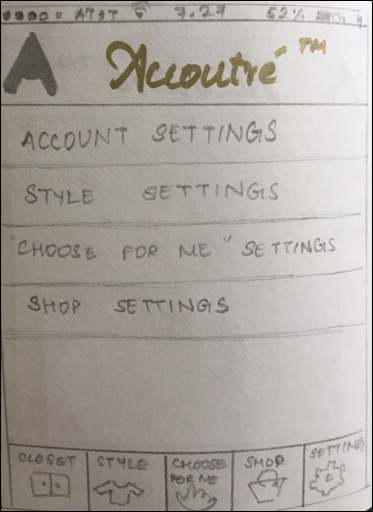 AT&T 7:27 52%
A Accoutré™
ACCOUNT SETTINGS
STYLE SETTINGS
"CHOOSE FOR ME" SETTINGS
SHOP SETTINGS
CLOSET STYLE CHOOSE FOR ME SHOP SETTING